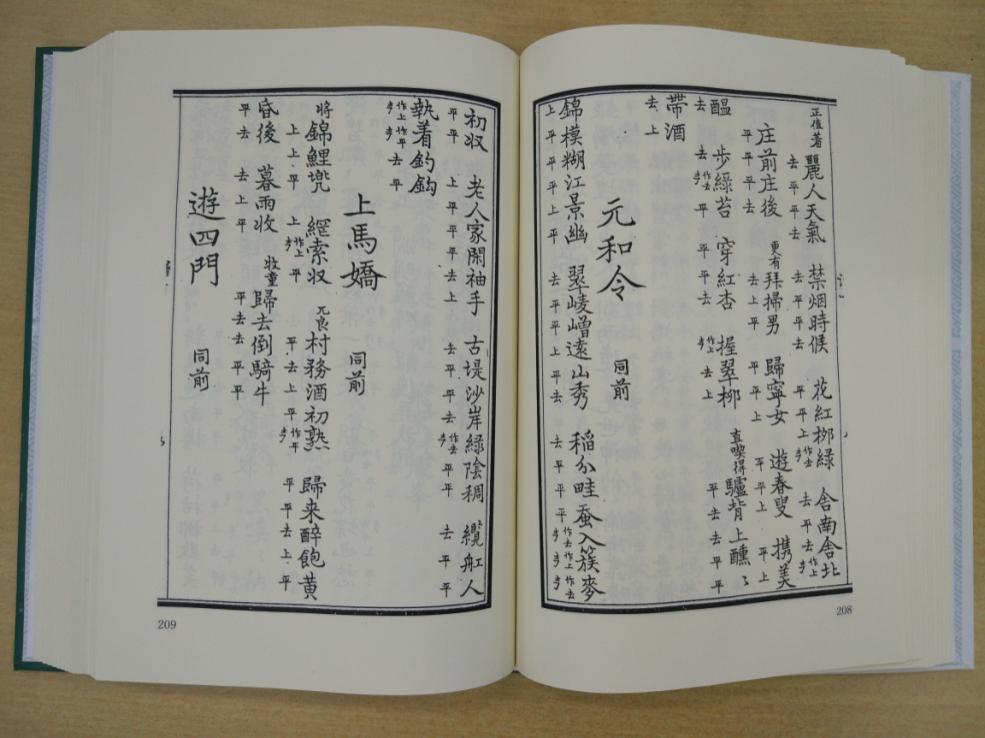 正值著麗人天氣 禁烟時候 花紅栁綠 舍南舍北
去平平去 去平平去 平平上作去 去平去作上
庄前庄後 更有拜掃男 歸寧女 遊春叟 携美
平平平去 去上平 平平上 平平上 平上
醖 步綠苔 穿紅杏 握翠栁 直喫得驢背上醺〻
去 去作去平 平平去 作上去上 平去去平平
帶酒
去上
元和令 同前
錦模糊江景幽 翠崚嶒遠山秀 稻分畦蚕入簇麥
上平平平上平 去平平上平去 去平平平作去作上作去
208
初収 老人家閑袖手 古堤沙岸綠陰稠 纜舡人
平平 上平平平去上 平平去作去平平 去平平
執着釣鈎
作上作平去平
上馬嬌 同前
將錦鯉兠 網索収 元良村務酒初熟 歸来醉飽黃
上上平 上作上平 平去上平作平 平平去上平
昏後 暮雨收 牧童歸去倒騎牛
平去 去上平 平去去平平
遊四門 同前
209